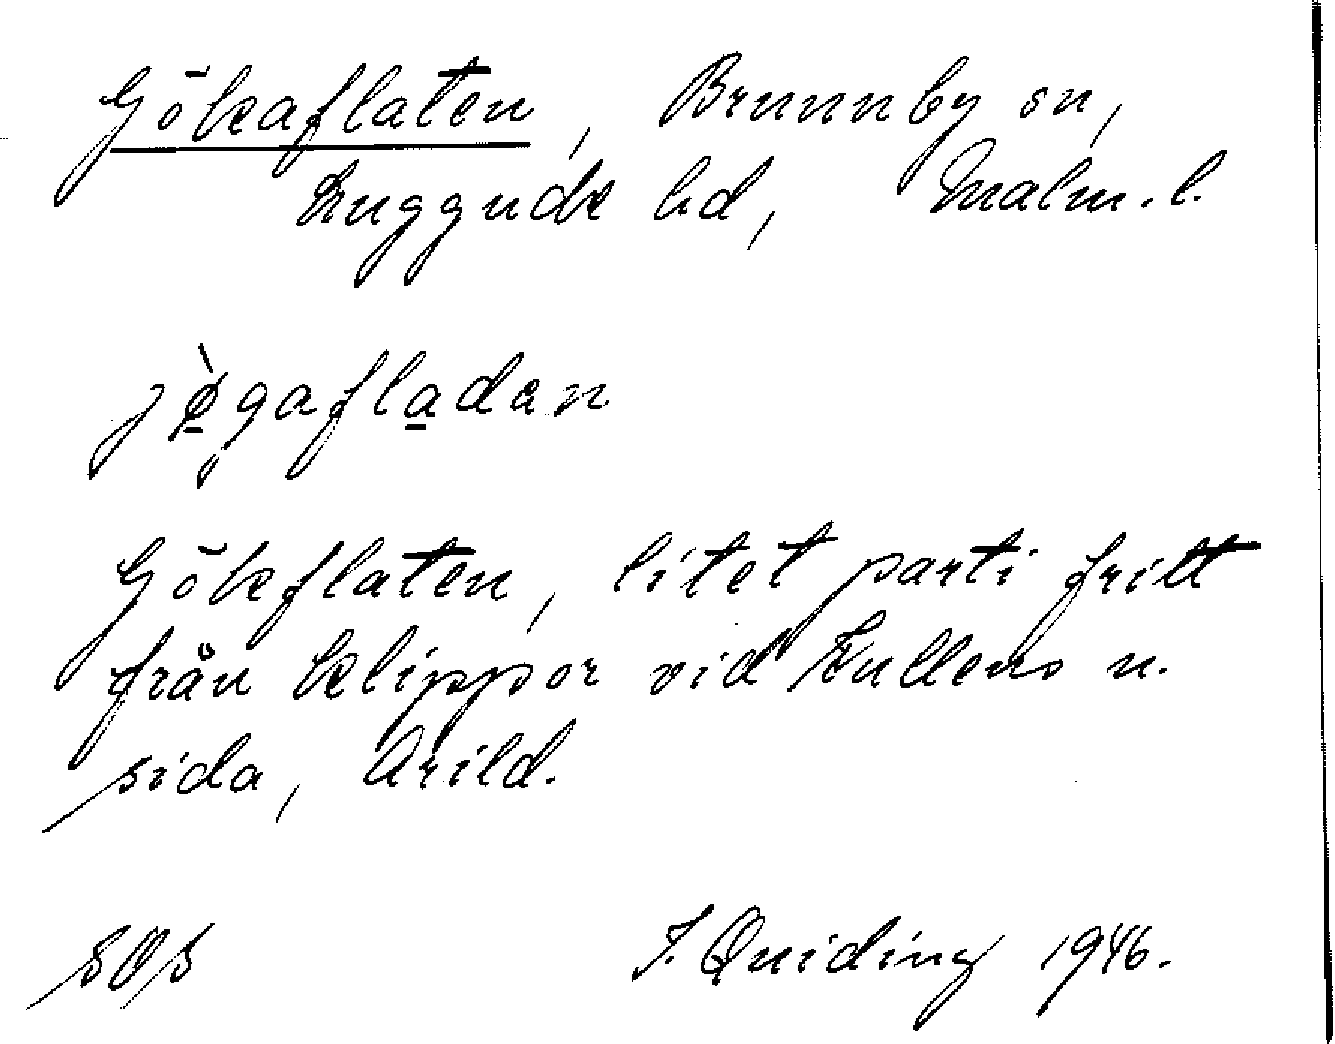 Gökaflaten, Brunnby sn,
Luggude hd, Malm. l.
jø̱̀gafla̱dan
Gökflaten, litet parti fritt
från klippor vid Kullens n.
sida, Arild.
SOS J. Quiding 1946.